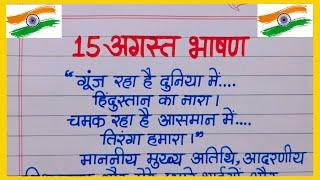 15-अगस्त भाषण
“गूंज रहा है दुनिया में....
हिंदुस्तान का नारा।
चमक रहा है आसमान में....
तिरंगा हमारा।”
माननीय मुख्य अतिथि, आदरणीय